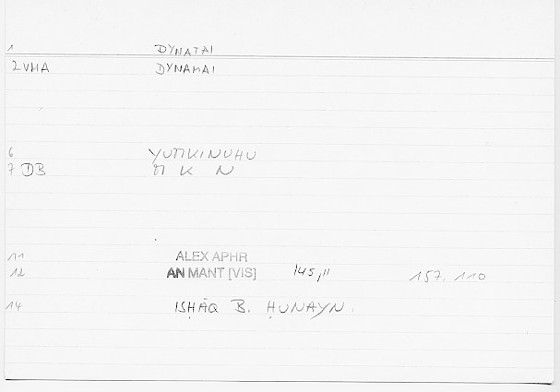 1 DYNATAI
2 VMA DYNAMAI
6 YUMKINUHU
7 DB M K N
11 ALEX APHR
12 AN MANT [VIS] 145,11 157.110
14 ISḤĀQ B. ḤUNAYN.